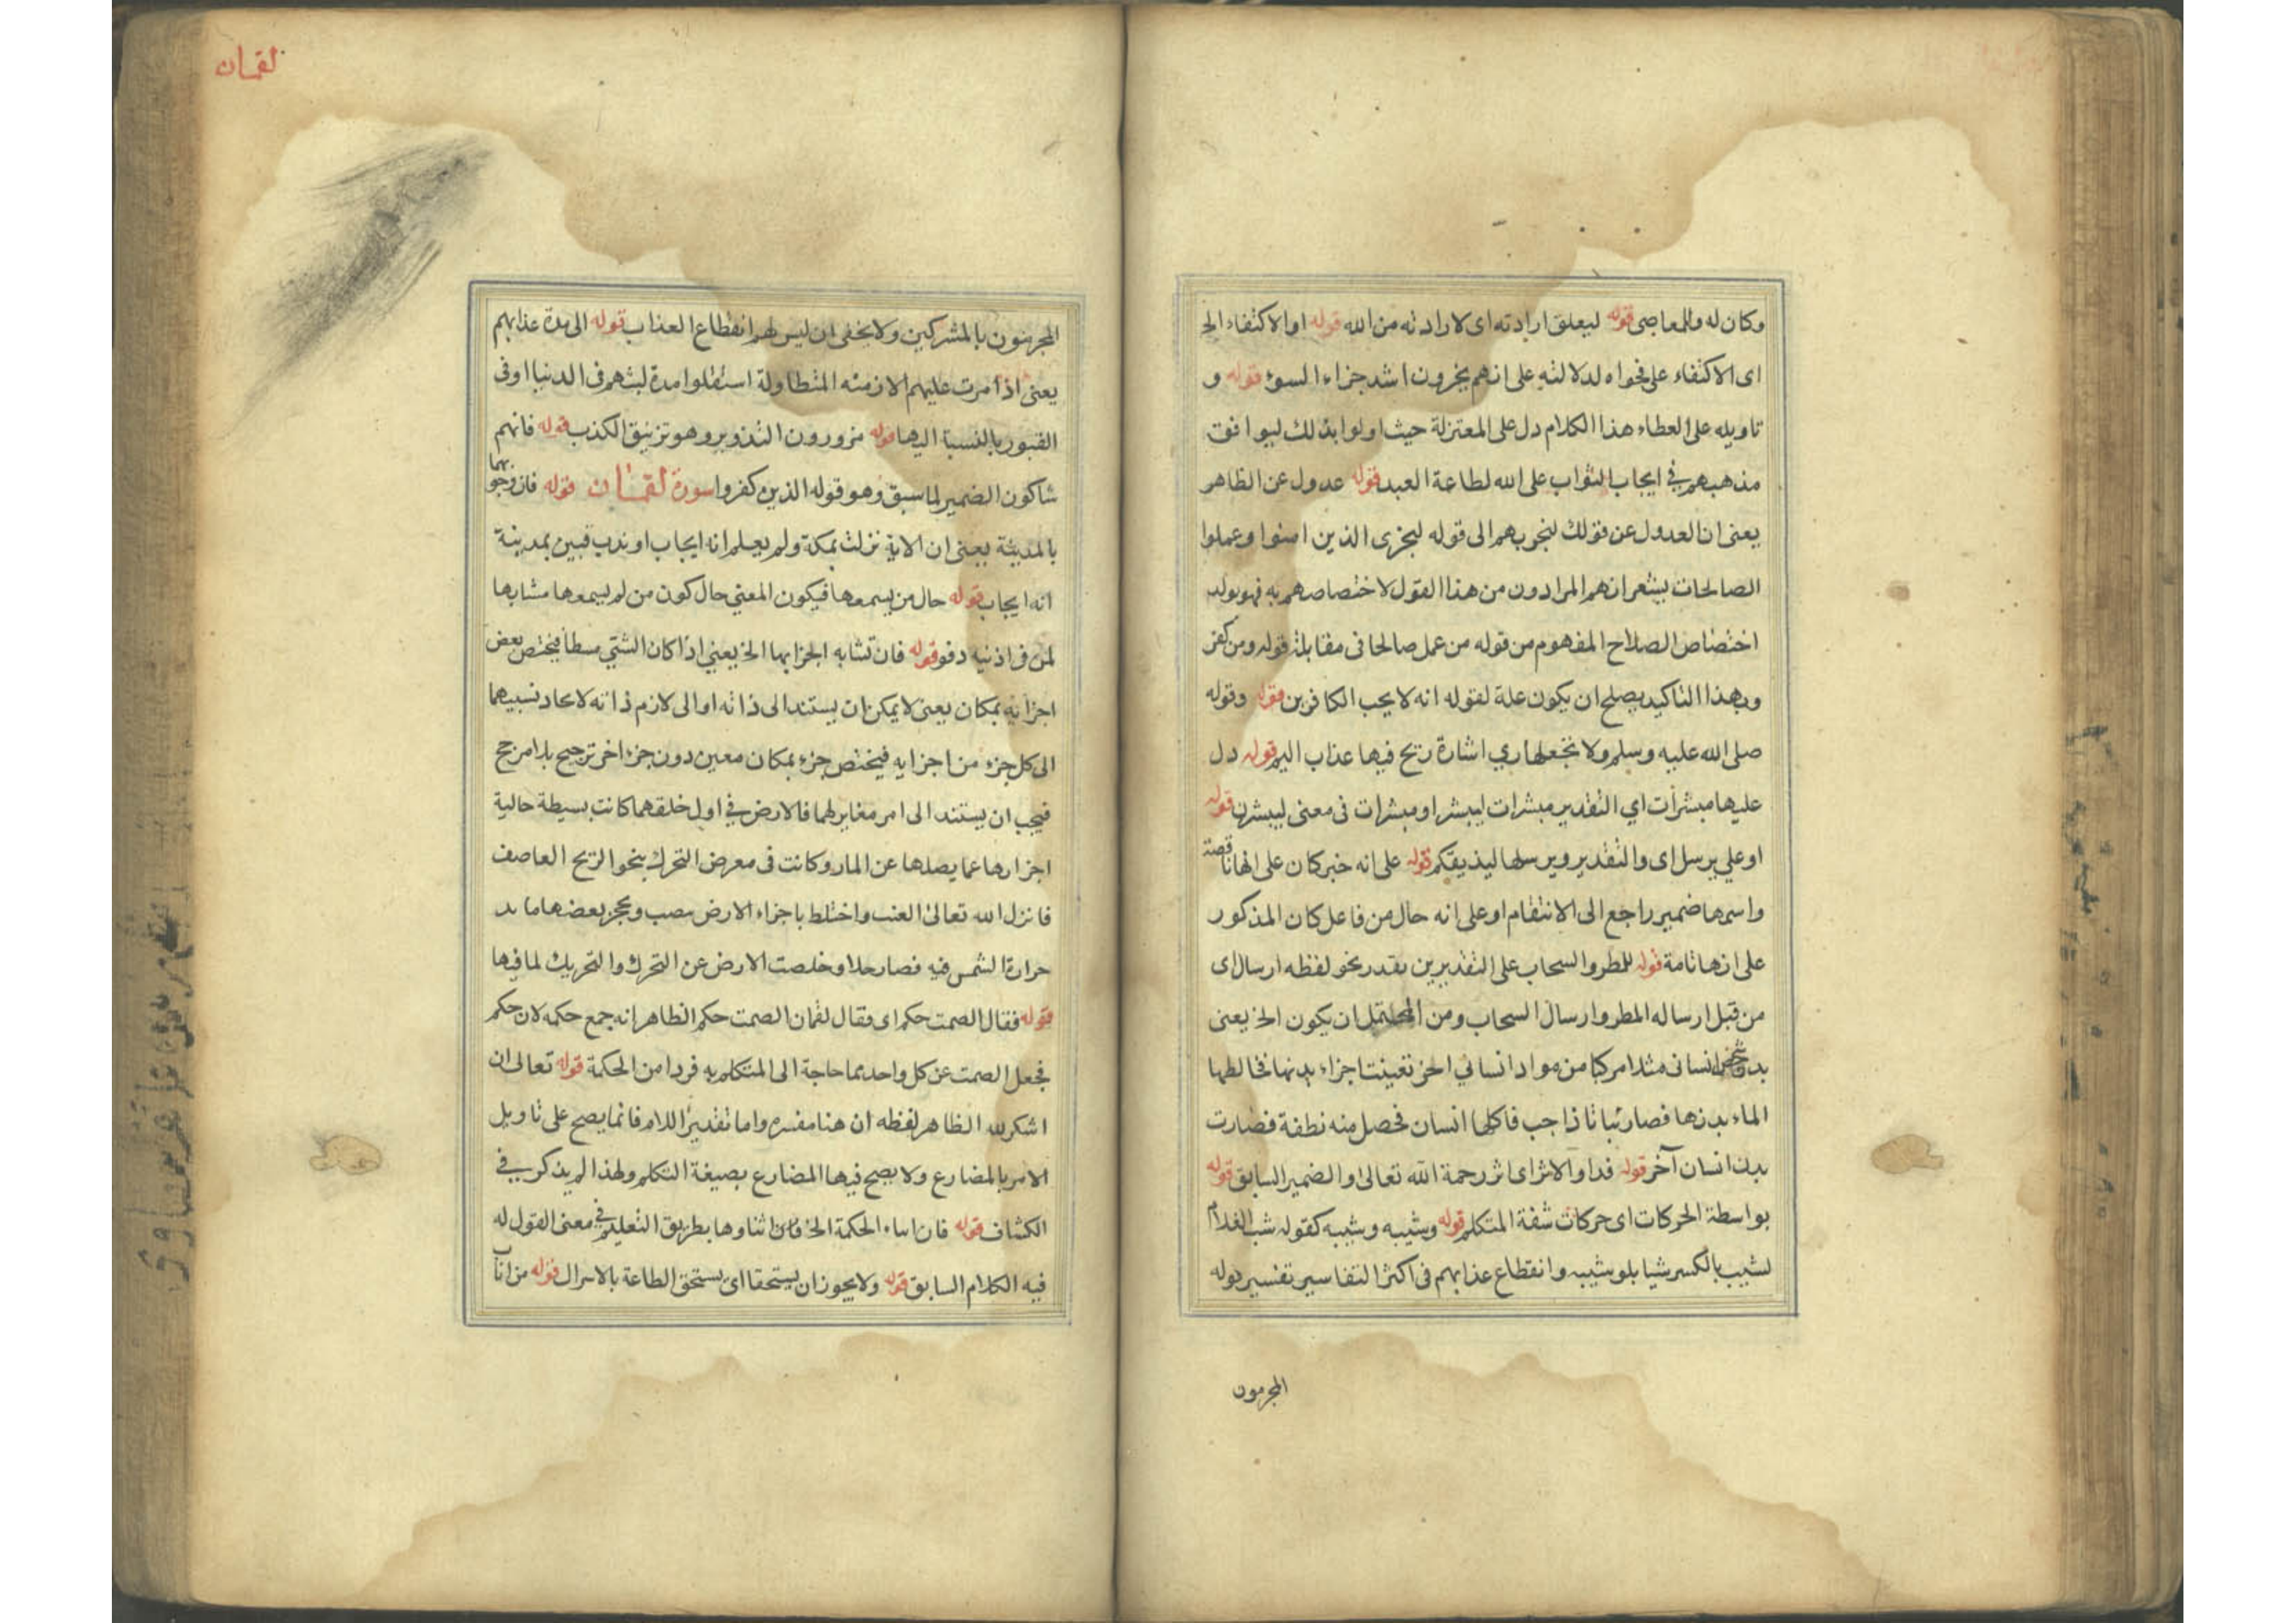 وكان له وللمعاصى قوله ليعلق ارادته اى لارادته من الله قوله او الاكتفاء الخ
اى الاكتفاء على فحواه لدلالته على انهم يخرون اشد جزاء السوء قوله و
تاويله على العطاء هذا الكلام دل على المعتزلة حيث اولوا بذلك ليوافق
مذهبهم فى ايجاب الثواب على الله لطاعة العبد قوله عدول عن الظاهر
يعنى ان العدول عن قولك لنجوبهم الى قوله ليجزى الذين امنوا وعملوا
الصالحات يشعر انهم المرادون من هذا القول لاختصاصهم به فهو يولد
اختصاص الصلاح المفهوم من قوله من عمل صالحا فى مقابلة قوله ومن كفر
وبهذا التاكيد يصلح ان يكون علة لقوله انه لا يحب الكافرين قوله وقوله
صلى الله عليه وسلم ولا تجعلها ري اشارة ريح فيها عذاب اليم قوله دل
عليها مبشرات اي التقدير مبشرات ليبشر او مبشرات فى معنى ليبشرن قوله
او علي يرسل اى والتقدير ويرسلها ليذيقكم قوله على انه خبر كان على انها ناقصة
واسمها ضمير راجع الى الانتقام او على انه حال من فاعل كان المذكور
على انها تامة قوله للطر والسحاب على التقديرين يقدر نحو لفظه ارسال اى
من قبل ارساله المطر وارسال السحاب ومن المحتمل ان يكون الخ يعنى
بدن شخص انسانى مثلا مركبا من مواد انساني اخر تعينت اجزاء بدنها فخالطها
الماء بدنها فصار نباتا ذا حب فاكلها انسان فحصل منه نطفة فصارت
بدن انسان آخر قوله فداو الاثر اى اثر رحمة الله تعالى او الضمير السابق قوله
بواسطة الحركات اى حركات شفة المتكلم قوله وشيبه وشيبه كقوله شب الغلام
لشيب بالكسر شيبا بلو شيبه وانقطاع عذابهم فى اكثر التفاسير تفسير قوله
المجرمون
لقمان
المجرمون بالمشركين ولا يخفى ان ليس لهم انقطاع العذاب قوله الى مدة عذابهم
يعنى اذا مرت عليهم الازمنه المتطاولة استقلوا مدة لبثهم فى الدنيا او فى
القبور بالنسبة اليها قوله مزورون التذوير وهو تزنيق الكذب قوله فانهم
شاكون الضمير لما سبق وهو قوله الذين كفروا سورة لقمان قوله فان وجوبهما
بالمدينة يعنى ان الاية نزلت بمكة ولم يعلم انه ايجاب او ندب فبين بمدينة
انه ايجاب قوله حال من يسمعها فيكون المعني حال كون من لم يسمعها مشابها
لمن فى اذنيه دفو قوله فان تشابه اجزائها الخ يعني اذا كان الشئي بسطا فيختص بعض
اجزائه بمكان يعنى لا يمكن ان يستند الى ذاته او الى لازم ذاته لاتحاد نسبيهما
الى كل جزء من اجزايه فيختص جزء بمكان معين دون جزء اخر ترجيح بلا مرجح
فيجب ان يستند الى امر مغاير لهما فالارض في اول خلقهما كانت بسيطة خالية
اجزارها عما يصلها عن المار وكانت فى معرض التحرك بنحو الريح العاصف
فانزل الله تعالى العنب واختلط باجزاء الارض مصب ويحجز بعضها ما بد
حرارة الشمس فيه فصار حلا وخلصت الارض عن التحرك والتحريك لما فيها
قوله فقال الصمت حكم اى فقال لقمان الصمت حكم الظاهر انه جمع حكمه لان حكم
فجعل الصمت عن كل واحد مما حاجة الى المتكلم به فردا من الحكمة قوله تعالى ان
اشكر لله الظاهر لفظه ان هنا مفسره واما تقدير اللام فانما يصح على تاويل
الامر بالمضارع ولا يصح فيها المضارع بصيغة التكلم ولهذا لم يذكر في
الكشاف قوله فان ايتاء الحكمة الخ فان اتناوها بطريق التعليم فى معنى القول له
فيه الكلام السابق قوله ولا يجوز ان يستحقا اى يستحق الطاعة بالاسرال قوله من اناب